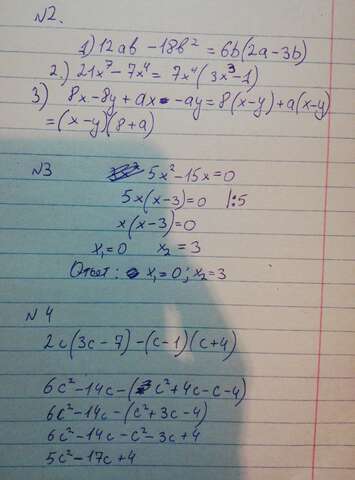 №2.
1) 12ab - 18b² = 6b(2a - 3b)
2.) 21x⁷ - 7x⁴ = 7x⁴(3x³ - 1)
3) 8x - 8y + ax - ay = 8(x - y) + a(x - y)
= (x - y)(8 + a)
№3 5x² - 15x = 0
5x(x - 3) = 0 |:5
x(x - 3) = 0
x₁ = 0 x₂ = 3
Ответ: x₁ = 0; x₂ = 3
№4
2c(3c - 7) - (c - 1)(c + 4)
6c² - 14c - (c² + 4c - c - 4)
6c² - 14c - (c² + 3c - 4)
6c² - 14c - c² - 3c + 4
5c² - 17c + 4